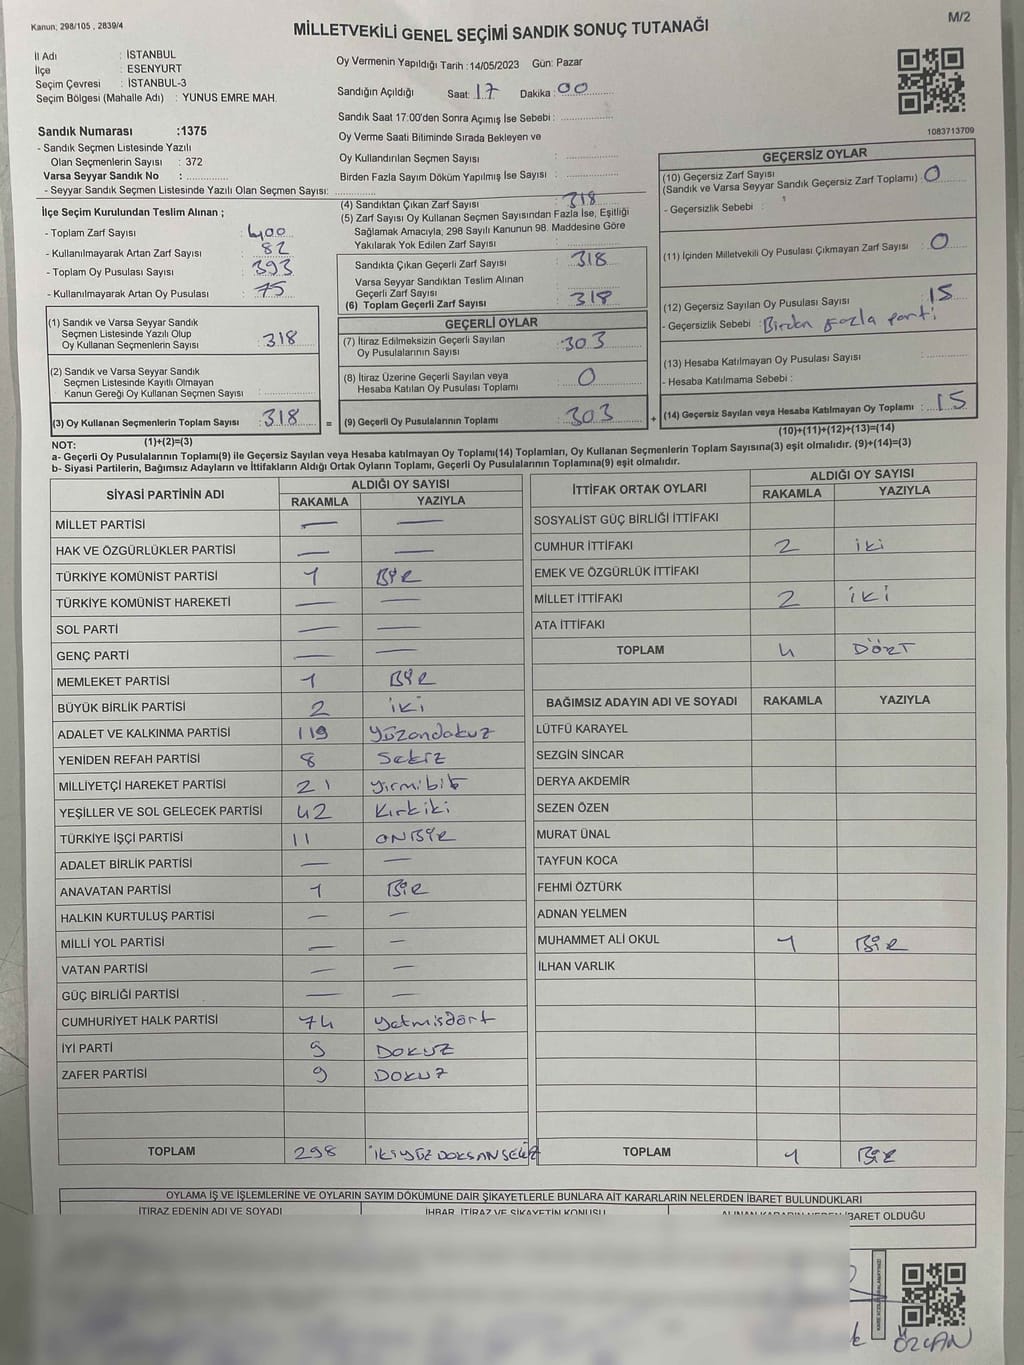 Kanun; 298/105 , 2839/4
MİLLETVEKİLİ GENEL SEÇİMİ SANDIK SONUÇ TUTANAĞI
M/2
İl Adı : İSTANBUL
İlçe : ESENYURT
Seçim Çevresi : İSTANBUL-3
Seçim Bölgesi (Mahalle Adı) : YUNUS EMRE MAH.
Oy Vermenin Yapıldığı Tarih : 14/05/2023 Gün: Pazar
Sandığın Açıldığı Saat: 17 Dakika : 00
Sandık Saat 17:00'den Sonra Açımış İse Sebebi :
Oy Verme Saati Bitiminde Sırada Bekleyen ve
Oy Kullandırılan Seçmen Sayısı :
Birden Fazla Sayım Döküm Yapılmış İse Sayısı :
1083713709
Sandık Numarası :1375
- Sandık Seçmen Listesinde Yazılı
Olan Seçmenlerin Sayısı : 372
Varsa Seyyar Sandık No :
- Seyyar Sandık Seçmen Listesinde Yazılı Olan Seçmen Sayısı:
İlçe Seçim Kurulundan Teslim Alınan ;
- Toplam Zarf Sayısı : 400
- Kullanılmayarak Artan Zarf Sayısı : 82
- Toplam Oy Pusulası Sayısı : 393
- Kullanılmayarak Artan Oy Pusulası : 75
(1) Sandık ve Varsa Seyyar Sandık
Seçmen Listesinde Yazılı Olup
Oy Kullanan Seçmenlerin Sayısı : 318
(2) Sandık ve Varsa Seyyar Sandık
Seçmen Listesinde Kayıtlı Olmayan
Kanun Gereği Oy Kullanan Seçmen Sayısı :
(3) Oy Kullanan Seçmenlerin Toplam Sayısı : 318
(4) Sandıktan Çıkan Zarf Sayısı : 318
(5) Zarf Sayısı Oy Kullanan Seçmen Sayısından Fazla İse, Eşitliği
Sağlamak Amacıyla, 298 Sayılı Kanunun 98. Maddesine Göre
Yakılarak Yok Edilen Zarf Sayısı :
Sandıkta Çıkan Geçerli Zarf Sayısı : 318
Varsa Seyyar Sandıktan Teslim Alınan
Geçerli Zarf Sayısı :
(6) Toplam Geçerli Zarf Sayısı : 318
GEÇERLİ OYLAR
(7) İtiraz Edilmeksizin Geçerli Sayılan
Oy Pusulalarının Sayısı : 303
(8) İtiraz Üzerine Geçerli Sayılan veya
Hesaba Katılan Oy Pusulası Toplamı : 0
= (9) Geçerli Oy Pusulalarının Toplamı : 303
GEÇERSİZ OYLAR
(10) Geçersiz Zarf Sayısı
(Sandık ve Varsa Seyyar Sandık Geçersiz Zarf Toplamı) : 0
- Geçersizlik Sebebi :
(11) İçinden Milletvekili Oy Pusulası Çıkmayan Zarf Sayısı : 0
(12) Geçersiz Sayılan Oy Pusulası Sayısı : 15
- Geçersizlik Sebebi : Birden fazla parti
(13) Hesaba Katılmayan Oy Pusulası Sayısı :
- Hesaba Katılmama Sebebi :
+ (14) Geçersiz Sayılan veya Hesaba Katılmayan Oy Toplamı : 15
NOT: (1)+(2)=(3)
(10)+(11)+(12)+(13)=(14)
a- Geçerli Oy Pusulalarının Toplamı(9) ile Geçersiz Sayılan veya Hesaba katılmayan Oy Toplamı(14) Toplamları, Oy Kullanan Seçmenlerin Toplam Sayısına(3) eşit olmalıdır. (9)+(14)=(3)
b- Siyasi Partilerin, Bağımsız Adayların ve İttifakların Aldığı Ortak Oyların Toplamı, Geçerli Oy Pusulalarının Toplamına(9) eşit olmalıdır.
SİYASİ PARTİNİN ADI ALDIĞI OY SAYISI
RAKAMLA YAZIYLA
MİLLET PARTİSİ — —
HAK VE ÖZGÜRLÜKLER PARTİSİ — —
TÜRKİYE KOMÜNİST PARTİSİ 1 BİR
TÜRKİYE KOMÜNİST HAREKETİ — —
SOL PARTİ — —
GENÇ PARTİ — —
MEMLEKET PARTİSİ 1 BİR
BÜYÜK BİRLİK PARTİSİ 2 iki
ADALET VE KALKINMA PARTİSİ 119 Yüzondokuz
YENİDEN REFAH PARTİSİ 8 Sekiz
MİLLİYETÇİ HAREKET PARTİSİ 21 Yirmibir
YEŞİLLER VE SOL GELECEK PARTİSİ 42 Kırkiki
TÜRKİYE İŞÇİ PARTİSİ 11 ONBİR
ADALET BİRLİK PARTİSİ — —
ANAVATAN PARTİSİ 1 BİR
HALKIN KURTULUŞ PARTİSİ — —
MİLLİ YOL PARTİSİ — —
VATAN PARTİSİ — —
GÜÇ BİRLİĞİ PARTİSİ — —
CUMHURİYET HALK PARTİSİ 74 Yetmisdört
İYİ PARTİ 9 DOKUZ
ZAFER PARTİSİ 9 DOKUZ
TOPLAM 298 İKİYÜZ DOKSANSEKİZ
İTTİFAK ORTAK OYLARI ALDIĞI OY SAYISI
RAKAMLA YAZIYLA
SOSYALİST GÜÇ BİRLİĞİ İTTİFAKI
CUMHUR İTTİFAKI 2 iki
EMEK VE ÖZGÜRLÜK İTTİFAKI
MİLLET İTTİFAKI 2 iki
ATA İTTİFAKI
TOPLAM 4 DÖRT
BAĞIMSIZ ADAYIN ADI VE SOYADI RAKAMLA YAZIYLA
LÜTFÜ KARAYEL
SEZGİN SİNCAR
DERYA AKDEMİR
SEZEN ÖZEN
MURAT ÜNAL
TAYFUN KOCA
FEHMİ ÖZTÜRK
ADNAN YELMEN
MUHAMMET ALİ OKUL 1 BİR
İLHAN VARLIK
TOPLAM 1 BİR
OYLAMA İŞ VE İŞLEMLERİNE VE OYLARIN SAYIM DÖKÜMÜNE DAİR ŞİKAYETLERLE BUNLARA AİT KARARLARIN NELERDEN İBARET BULUNDUKLARI
İTİRAZ EDENİN ADI VE SOYADI İHBAR, İTİRAZ VE ŞİKAYETİN KONUSU ALINAN KARARIN NEDEN İBARET OLDUĞU
ÖZCAN